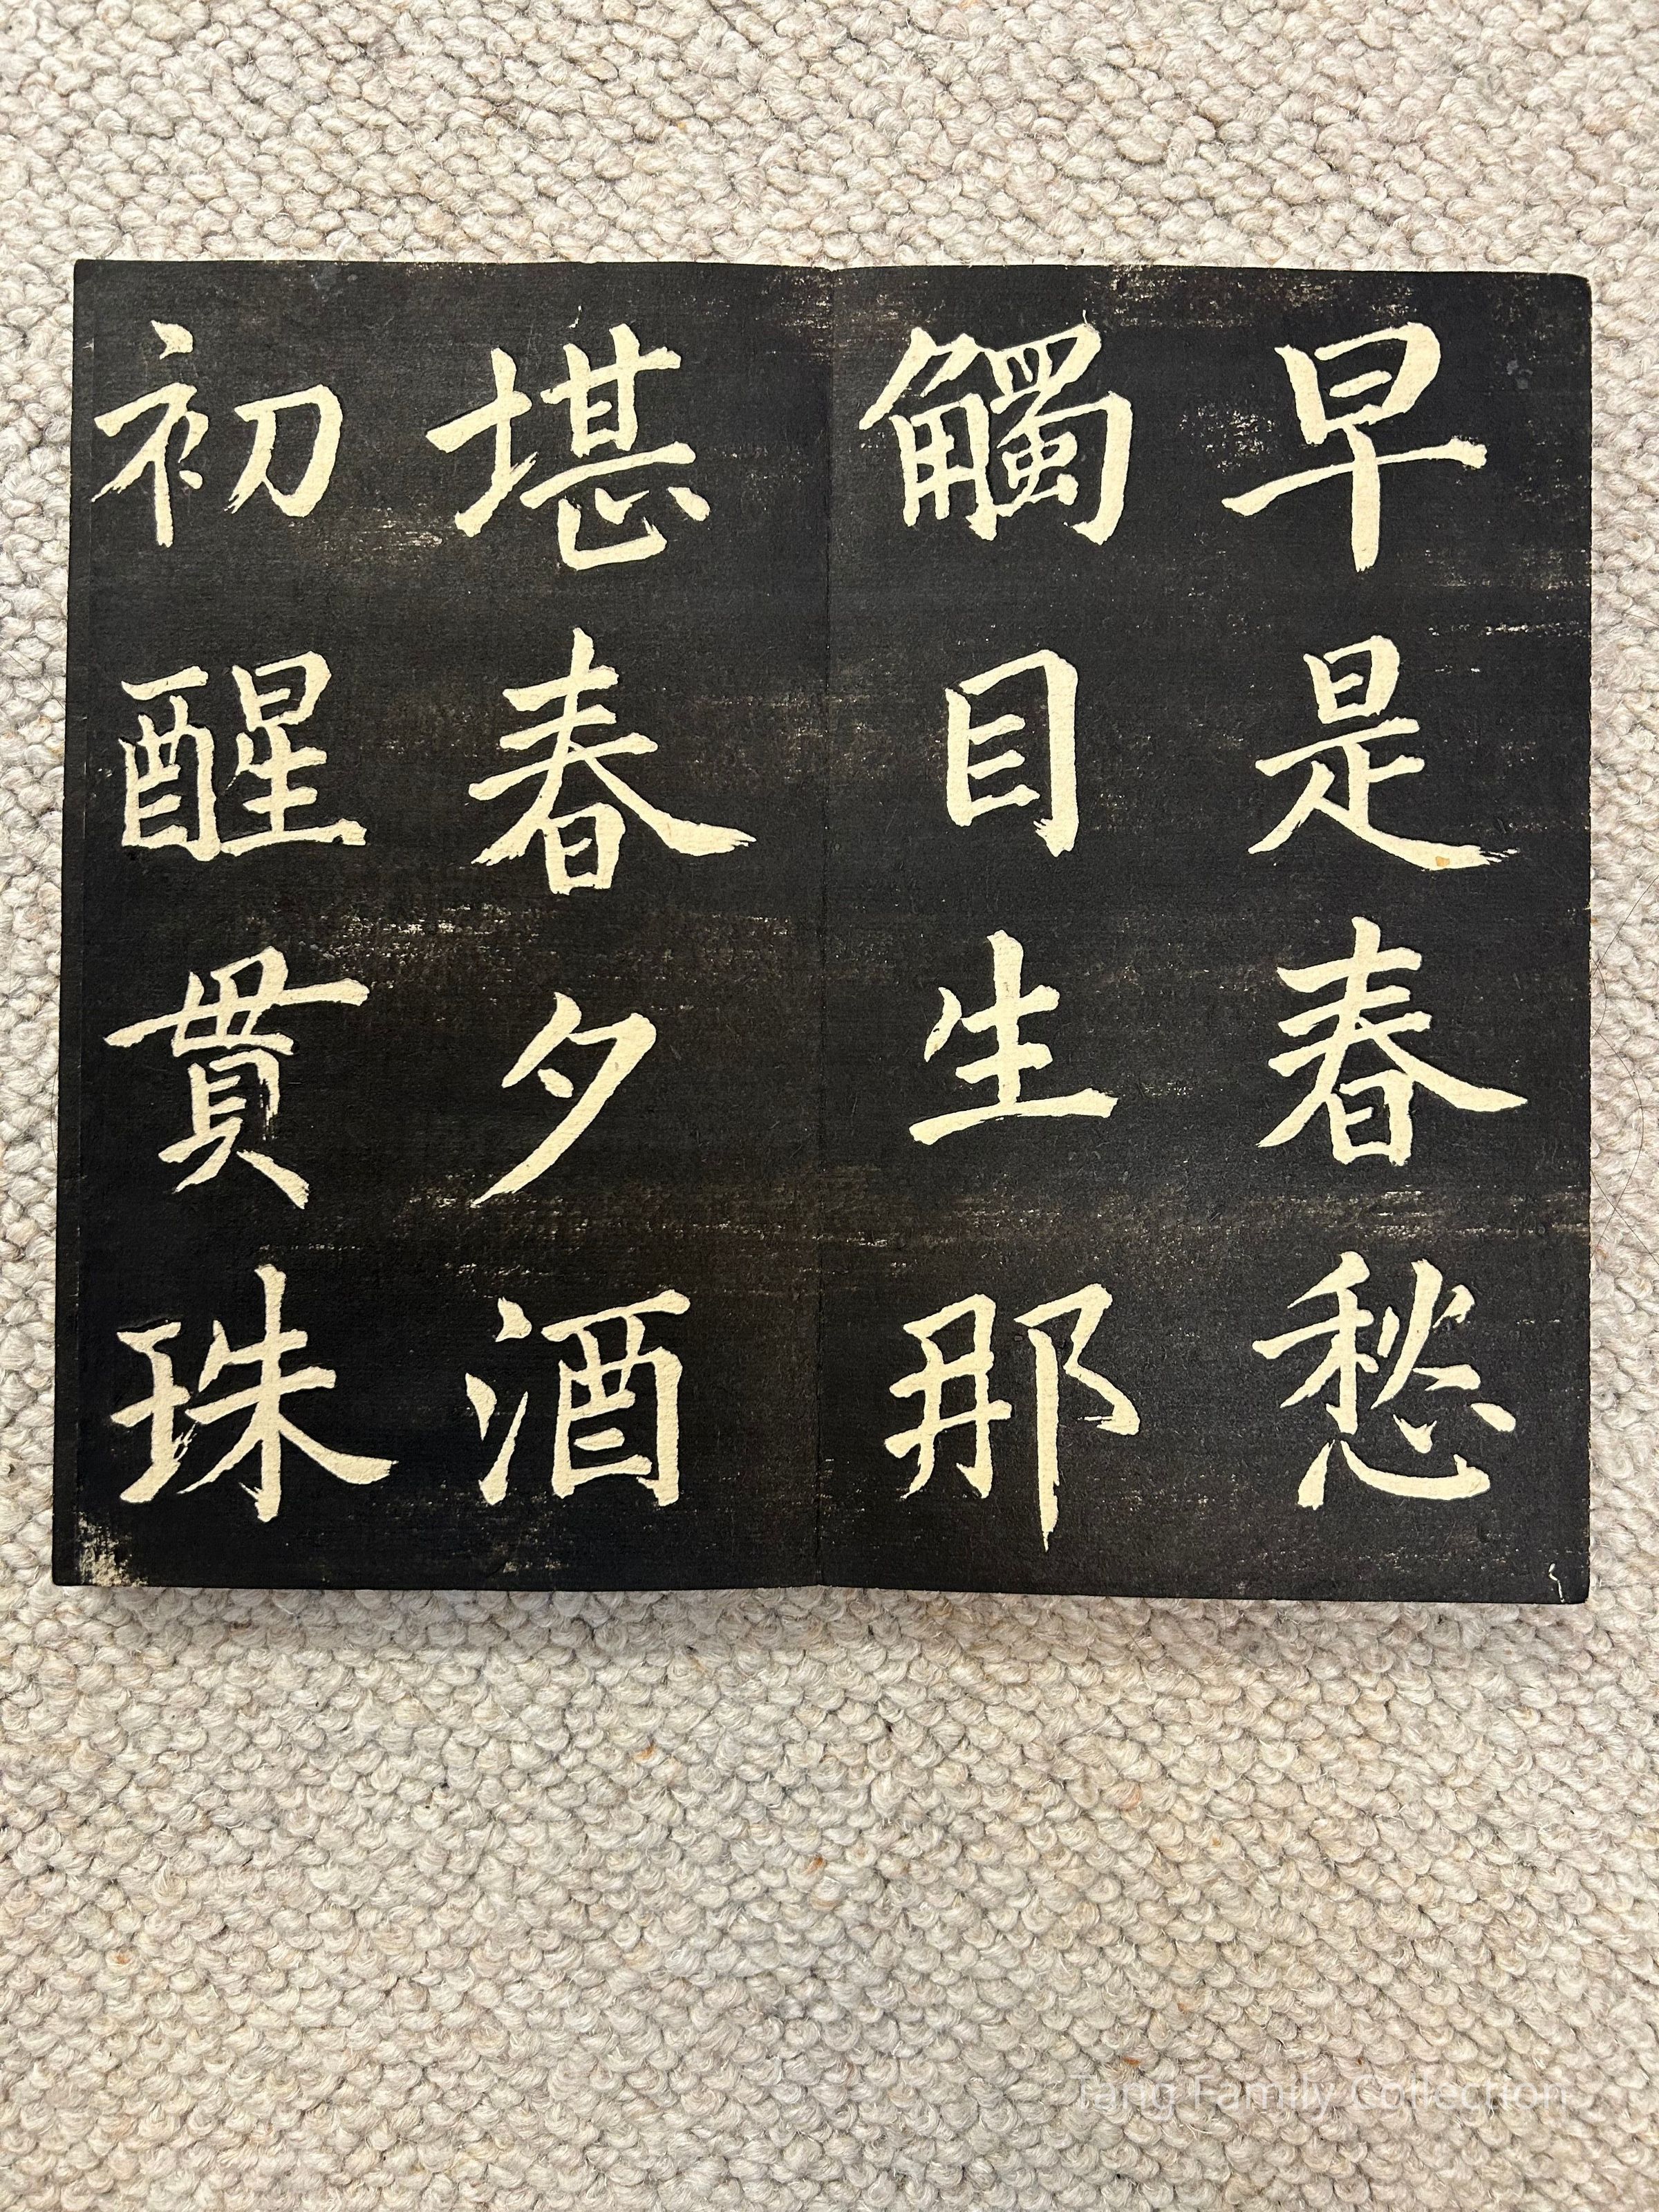 早是春愁
觸目生那
堪春夕酒
初醒貫珠
Tang Family Collection